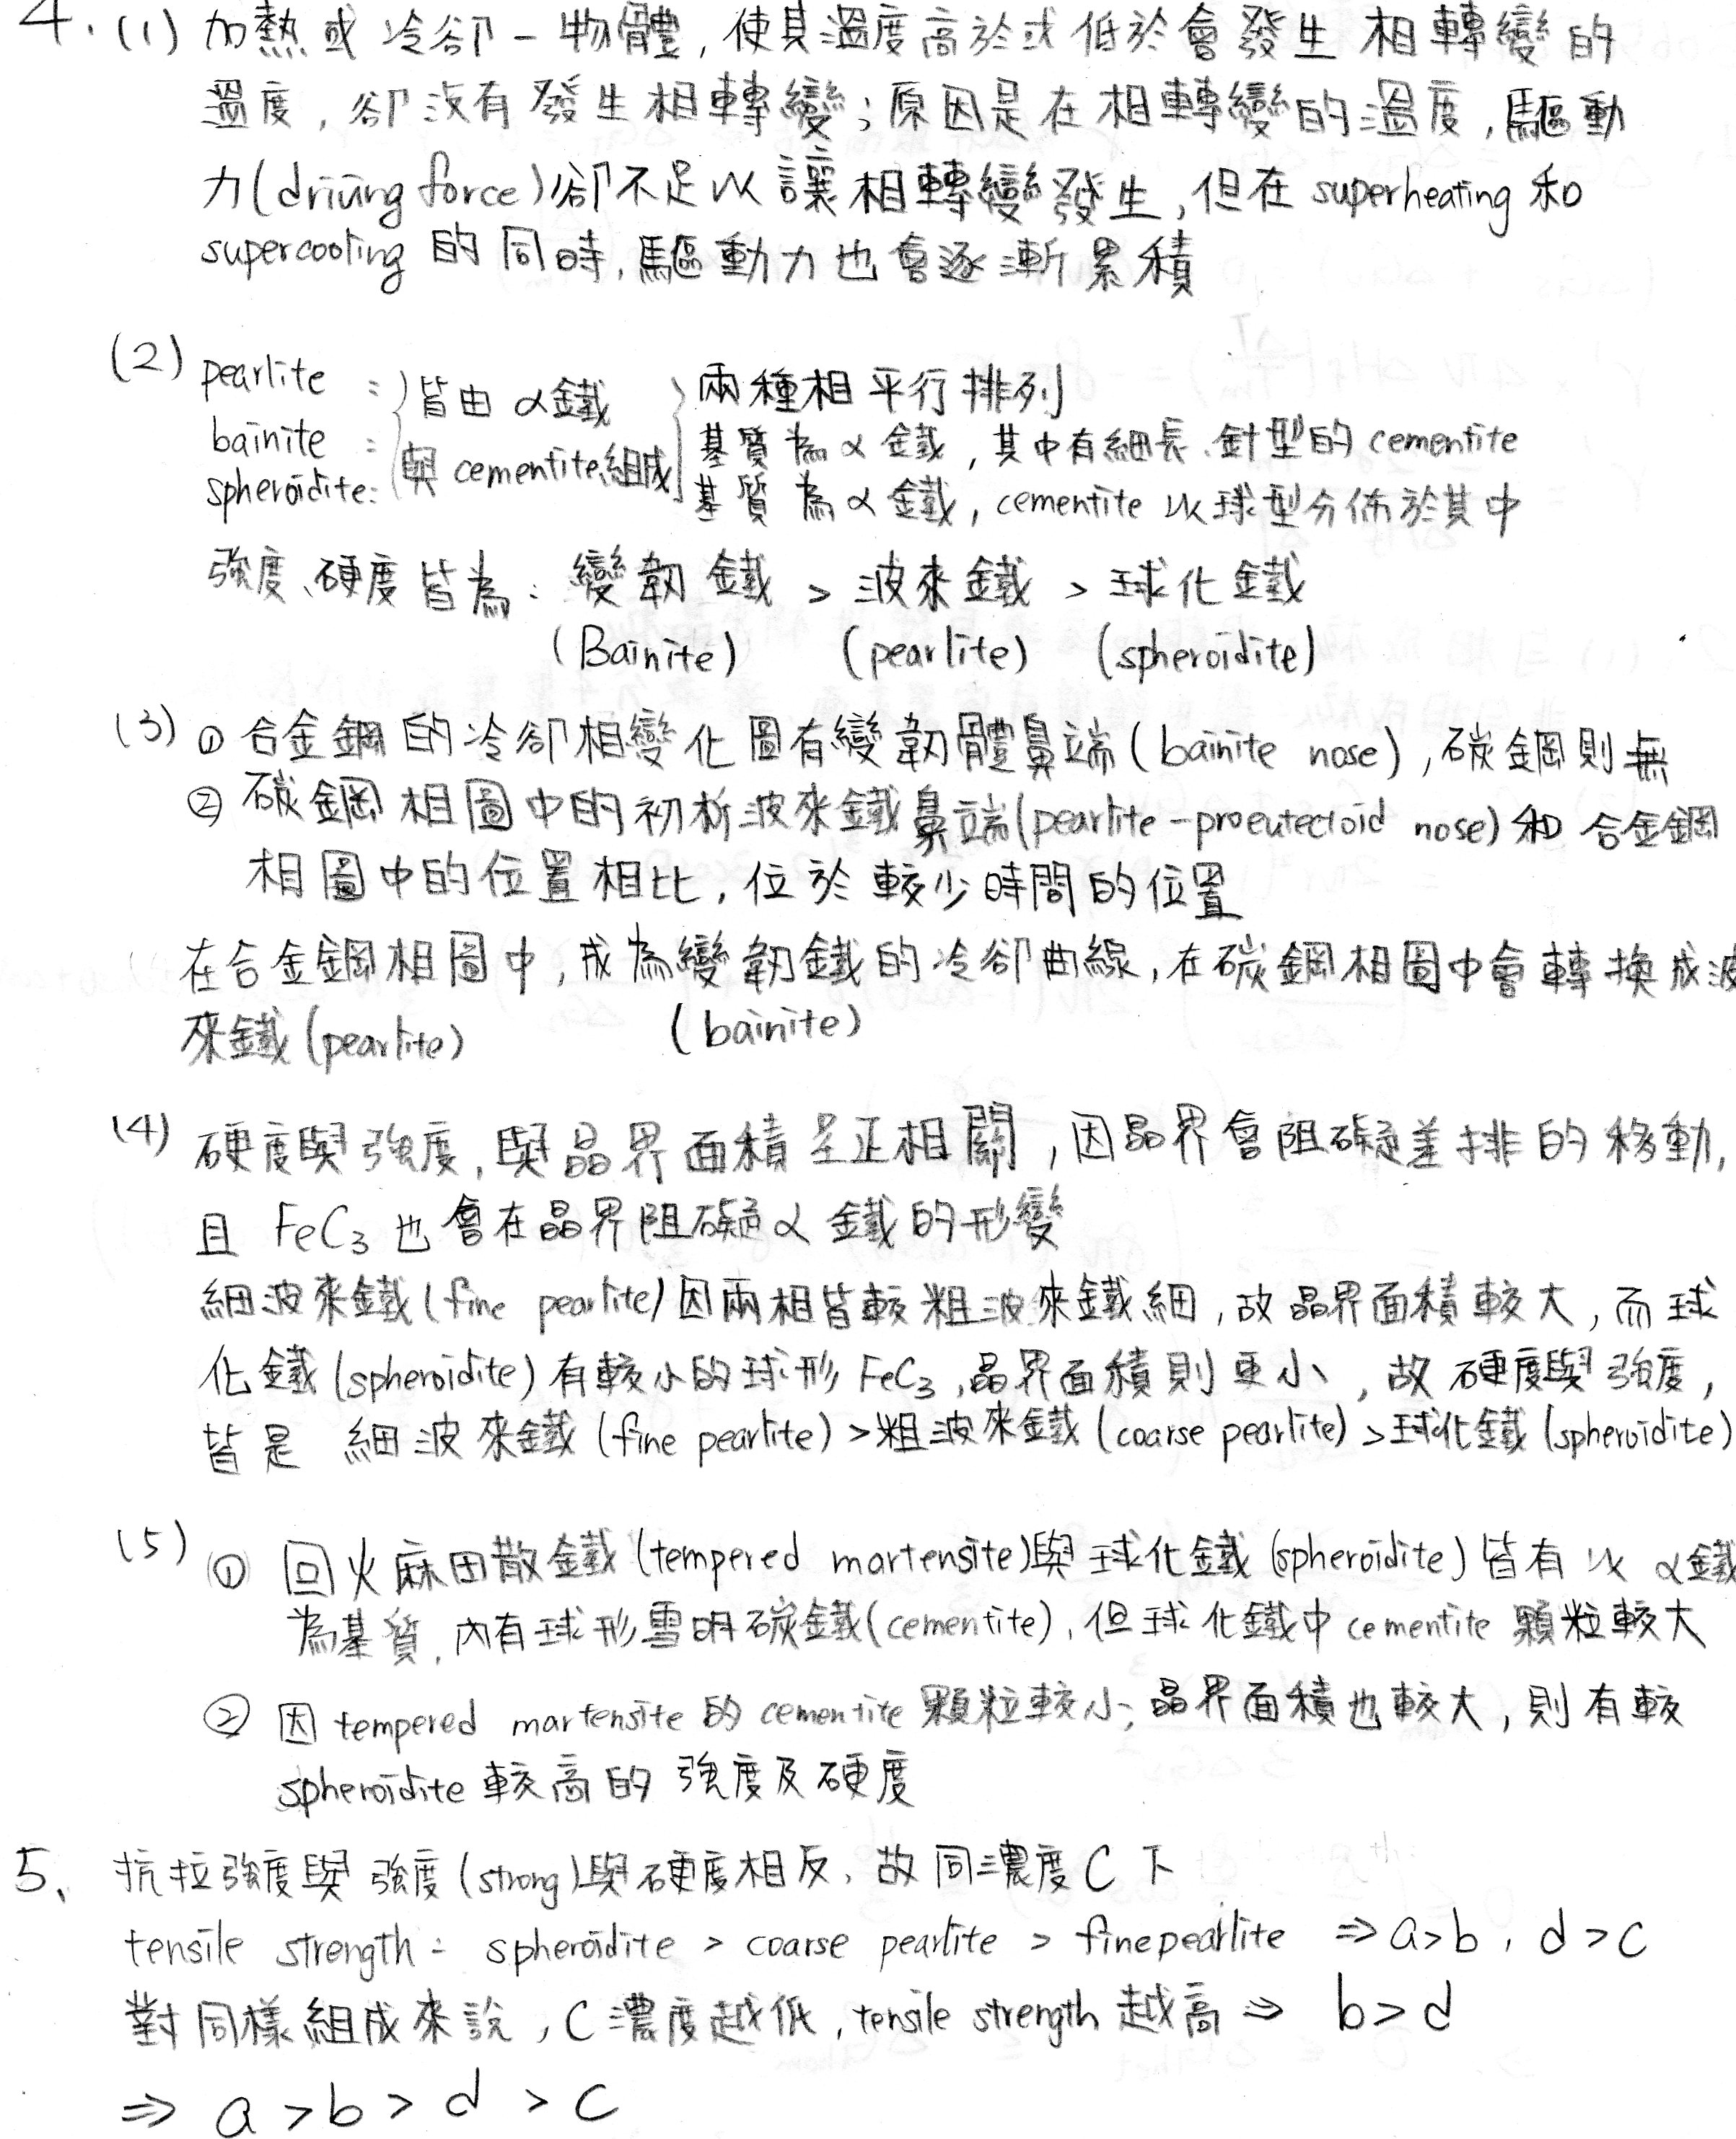 4. (1) 加熱或冷卻一物體, 使其溫度高於或低於會發生相轉變的
溫度, 卻沒有發生相轉變; 原因是在相轉變的溫度, 驅動
力(driving force)卻不足以讓相轉變發生, 但在 superheating 和
supercooling 的同時, 驅動力也會逐漸累積
(2) pearlite : 皆由 α鐵 兩種相平行排列
bainite : 與 cementite組成 基質為 α 鐵, 其中有細長、針型的 cementite
spheroidite: 基質為 α 鐵, cementite 以球型分佈於其中
強度、硬度皆為: 變韌鐵 > 波來鐵 > 球化鐵
(Bainite) (pearlite) (spheroidite)
(3) ① 合金鋼的冷卻相變化圖有變韌體鼻端 (bainite nose), 碳鋼則無
② 碳鋼相圖中的初析波來鐵鼻端(pearlite-proeutectoid nose) 和合金鋼
相圖中的位置相比, 位於較少時間的位置
在合金鋼相圖中, 成為變韌鐵的冷卻曲線, 在碳鋼相圖中會轉換成波
來鐵 (pearlite) (bainite)
(4) 硬度與強度, 與晶界面積呈正相關, 因晶界會阻礙差排的移動,
且 FeC₃ 也會在晶界阻礙 α 鐵的形變
細波來鐵 (fine pearlite) 因兩相皆較粗波來鐵細, 故晶界面積較大, 而球
化鐵 (spheroidite) 有較小的球形 FeC₃, 晶界面積則更小, 故硬度與強度,
皆是 細波來鐵 (fine pearlite) > 粗波來鐵 (coarse pearlite) > 球化鐵 (spheroidite)
(5) ① 回火麻田散鐵 (tempered martensite)與球化鐵 (spheroidite) 皆有以 α鐵
為基質, 內有球形雪明碳鐵(cementite), 但球化鐵中 cementite 顆粒較大
② 因 tempered martensite 的 cementite 顆粒較小, 晶界面積也較大, 則有較
spheroidite 較高的強度及硬度
5、 抗拉強度與強度 (strong)與硬度相反, 故同濃度 C 下
tensile strength: spheroidite > coarse pearlite > fine pearlite ⇒ a>b, d>c
對同樣組成來說, C 濃度越低, tensile strength 越高 ⇒ b>d
⇒ a > b > d > c